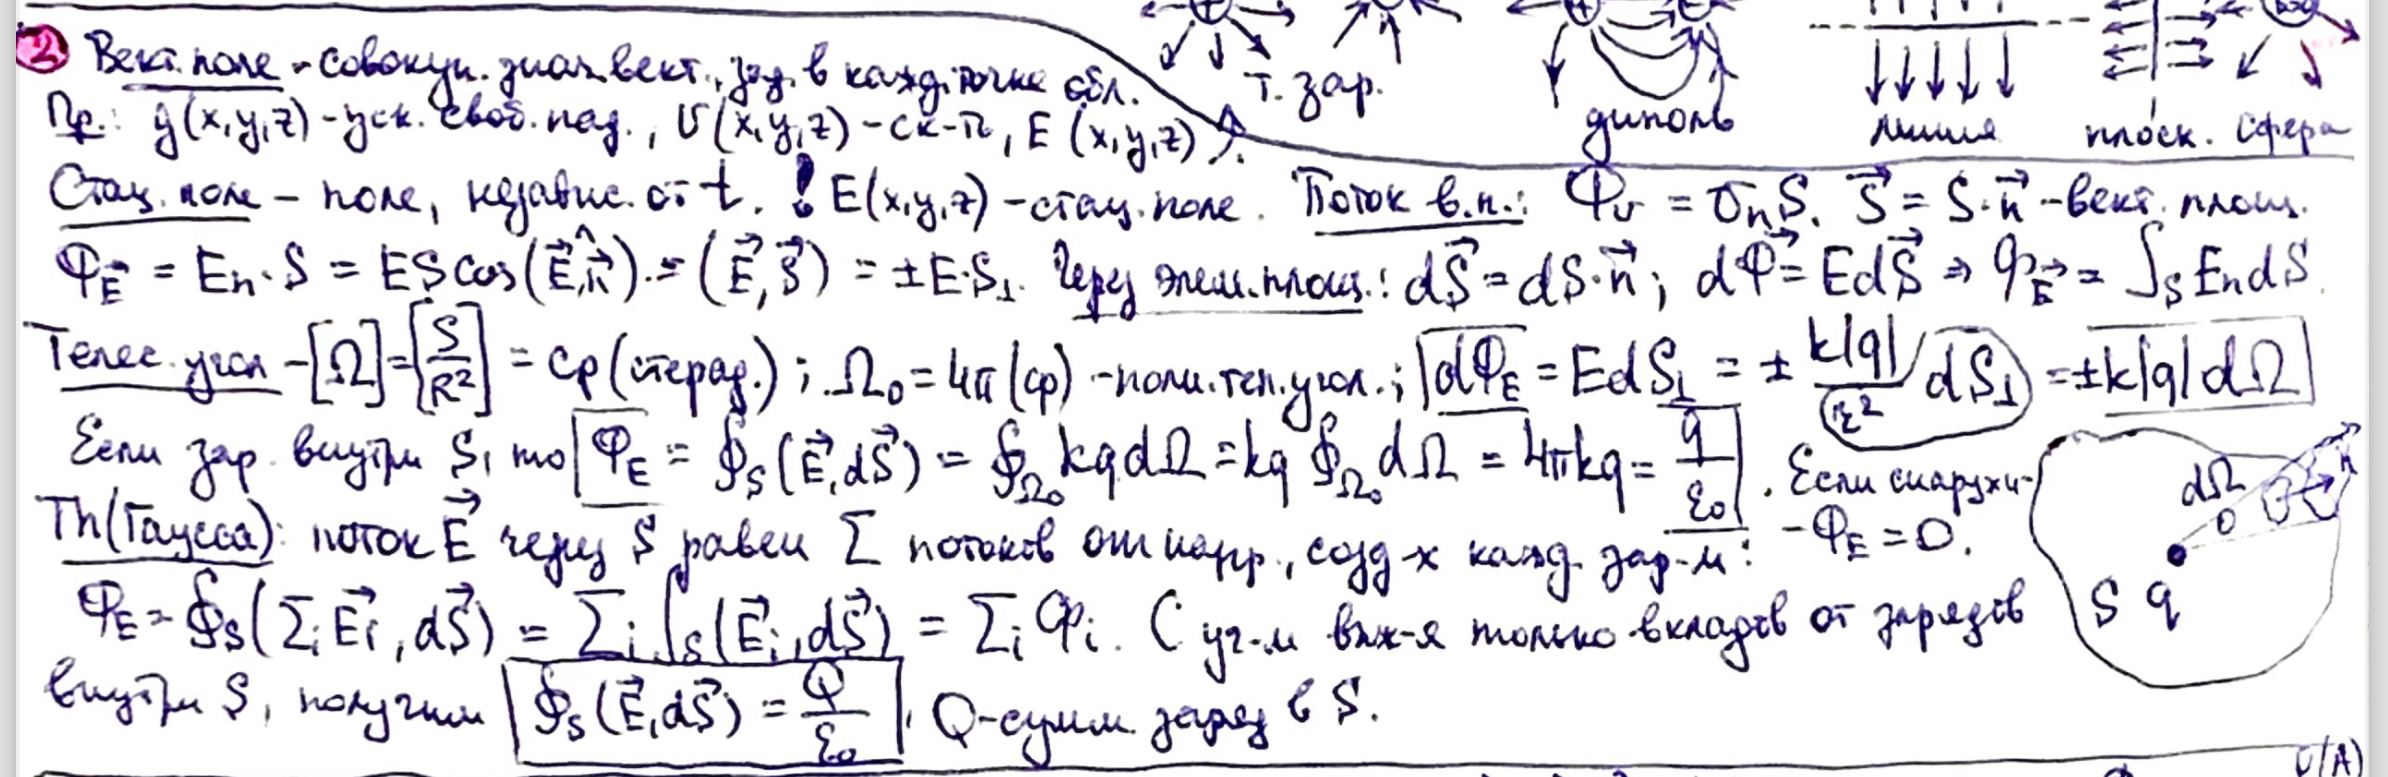 т. зар. диполь линия плоск. сфера
② Вект. поле - совокуп. знач. вект., зад. в кажд. точке обл.
Пр.: g(x,y,z) - уск. своб. пад., υ(x,y,z) - ск-ть, E(x,y,z)
Стац. поле - поле, независ. от t. ! E(x,y,z) - стац. поле. Поток в.п.: Φᵥ = υₙS. S⃗ = S·n⃗ - вект. площ.
Φ_E⃗ = Eₙ·S = ES cos(E⃗,^n⃗) = (E⃗,S⃗) = ±E·S⊥. Через элем. площ.: dS⃗ = dS·n⃗; dΦ = E⃗dS⃗ ⇒ φ_E⃗ = ∫_S EₙdS.
Телес. угол - [Ω] = [S/R²] = ср (стерад.); Ω₀ = 4π (ср) - полн. тел. угол.; dΦ_E = EdS⊥ = ± k|q|/r² dS⊥ = ±k|q|dΩ
Если зар. внутри S, то Φ_E = ∮_S(E⃗,dS⃗) = ∮_Ω₀ kqdΩ = kq ∮_Ω₀ dΩ = 4πkq = q/ε₀. Если снаружи -
- Φ_E = 0.
Th(Гаусса): поток E⃗ через S равен Σ потоков от напр., созд-х кажд. зар-м:
Φ_E = ∮_S(Σᵢ E⃗ᵢ, dS⃗) = Σᵢ ∫_S(E⃗ᵢ, dS⃗) = Σᵢ Φᵢ. С уч-м вкл-я только вкладов от зарядов
внутри S, получим ∮_S(E⃗,dS⃗) = Q/ε₀. Q - сумм. заряд в S.
dΩ
n⃗
S q
U(A)